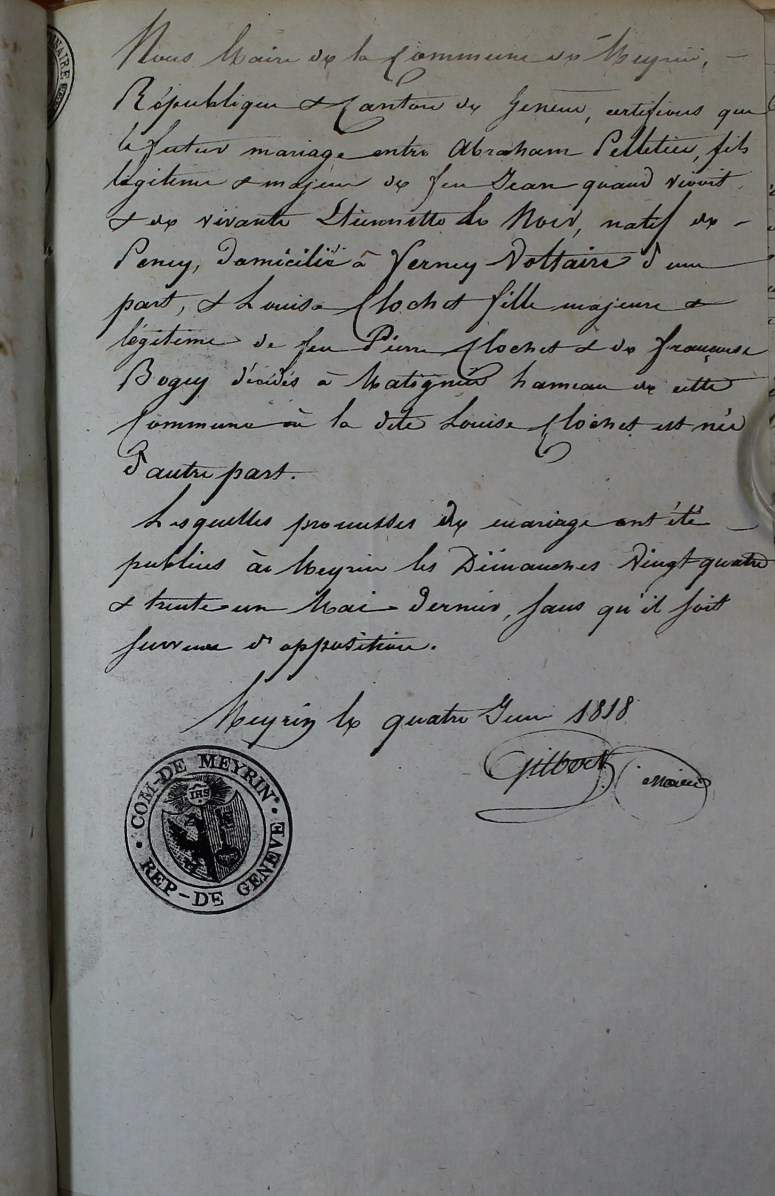 Nous Maire de la Commune de Meyrin, –
République & Canton de Genève, certifions que
le futur mariage entre Abraham Pelletier, fils
légitime & majeur de feu Jean quand vivoit
& de vivante Etiennette Le Noir, natif de –
Peney, domicilié à Ferney Voltaire d'une
part, & Louise Clochet fille majeure &
légitime de feu Pierre Clochet & de françoise
Bogey décédés à Matignin hameau de cette
Commune où la dite Louise Clochet est née
d'autre part.
Lesquelles promesses de mariage ont été –
publiées à Meyrin les Dimanches Vingt quatre
& trente un Mai dernier, sans qu'il soit
survenu d'opposition.
Meyrin le quatre Juin 1818
Gilbert maire
COM-DE MEYRIN
IHS
REP-DE GENEVE